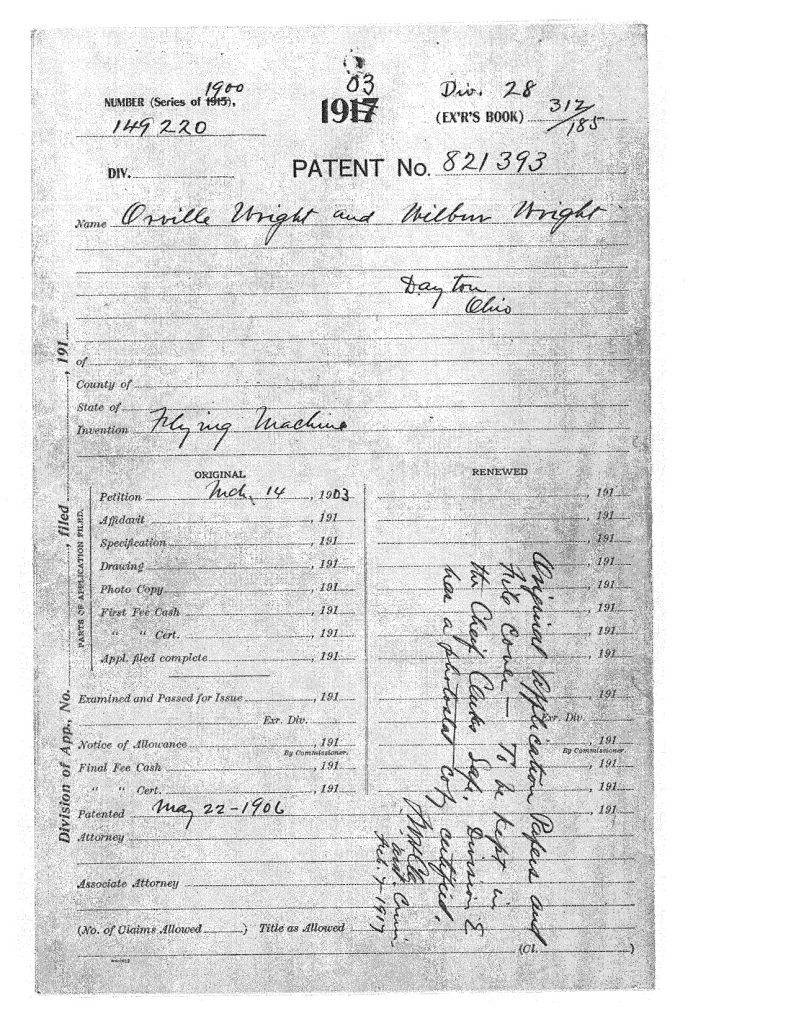 1900
NUMBER (Series of 1915),
149220
03
1917
Div. 28
(EX'R'S BOOK) 312/185
DIV.
PATENT No. 821393
Name Orville Wright and Wilbur Wright
Dayton
Ohio
of
County of
State of
Invention Flying Machine
Division of App., No. , filed , 191
PARTS OF APPLICATION FILED.
ORIGINAL
Petition Mch, 14, 1903
Affidavit , 191
Specification , 191
Drawing , 191
Photo Copy , 191
First Fee Cash , 191
" " Cert. , 191
Appl. filed complete , 191
Examined and Passed for Issue , 191
Exr. Div.
Notice of Allowance , 191
By Commissioner.
Final Fee Cash , 191
" " Cert. , 191
Patented May 22-1906
Attorney
Associate Attorney
(No. of Claims Allowed ) Title as Allowed
RENEWED
, 191
, 191
, 191
, 191
, 191
, 191
, 191
, 191
, 191
Exr. Div.
, 191
By Commissioner.
, 191
, 191
, 191
(Cl. )
Original Application Papers and
file cover — To be kept in
the Chief Clerks Safe. Division E
has a photostat copy certified.
Feb. 7-1917